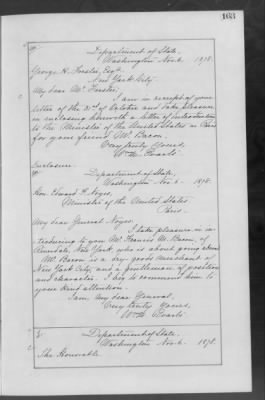 163
Department of State,
Washington Nov. 6. 1878.
George H. Forster, Esqr.
New York City.
My dear Mr. Forster,
I am in receipt of your
letter of the 31st of October and take pleasure
in enclosing herewith a letter of introduction
to the Minister of the United States at Paris
for your friend Mr. Bacon.
Very truly yours,
Wm. M. Evarts.
Enclosure.
Department of State,
Washington Nov. 6. 1878.
Hon. Edward F. Noyes,
Minister of the United States
Paris.
My dear General Noyes,
I take pleasure in in-
troducing to you Mr. Francis M. Bacon, of
New York, who is about going abroad
Mr. Bacon is a dry-goods merchant of
New York City, and a gentleman of position
and character. I beg to commend him to
your kind attention.
I am, My dear General,
Very truly yours,
Wm. M. Evarts.
Department of State,
Washington Nov. 6. 1878.
The Honorable